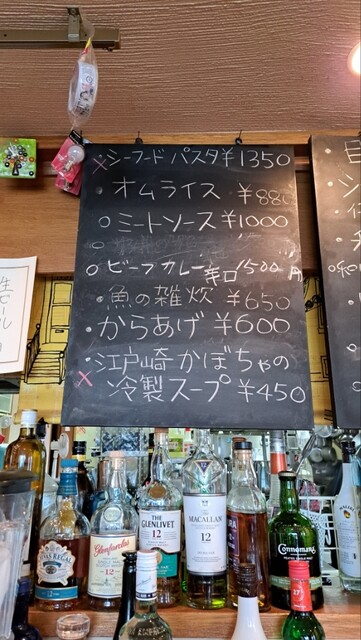 ×シーフード パスタ¥1350
○オムライス ¥880
○ミートソース¥1,000
○ビーフカレー辛口1500円
・魚の雑炊 ¥650
・からあげ ¥600
・江戸崎かぼちゃの
×冷製スープ¥450
CHIVAS REGAL
Glenfarclas
THE
GLENLIVET
12
The
MACALLAN
12
Connemara
27